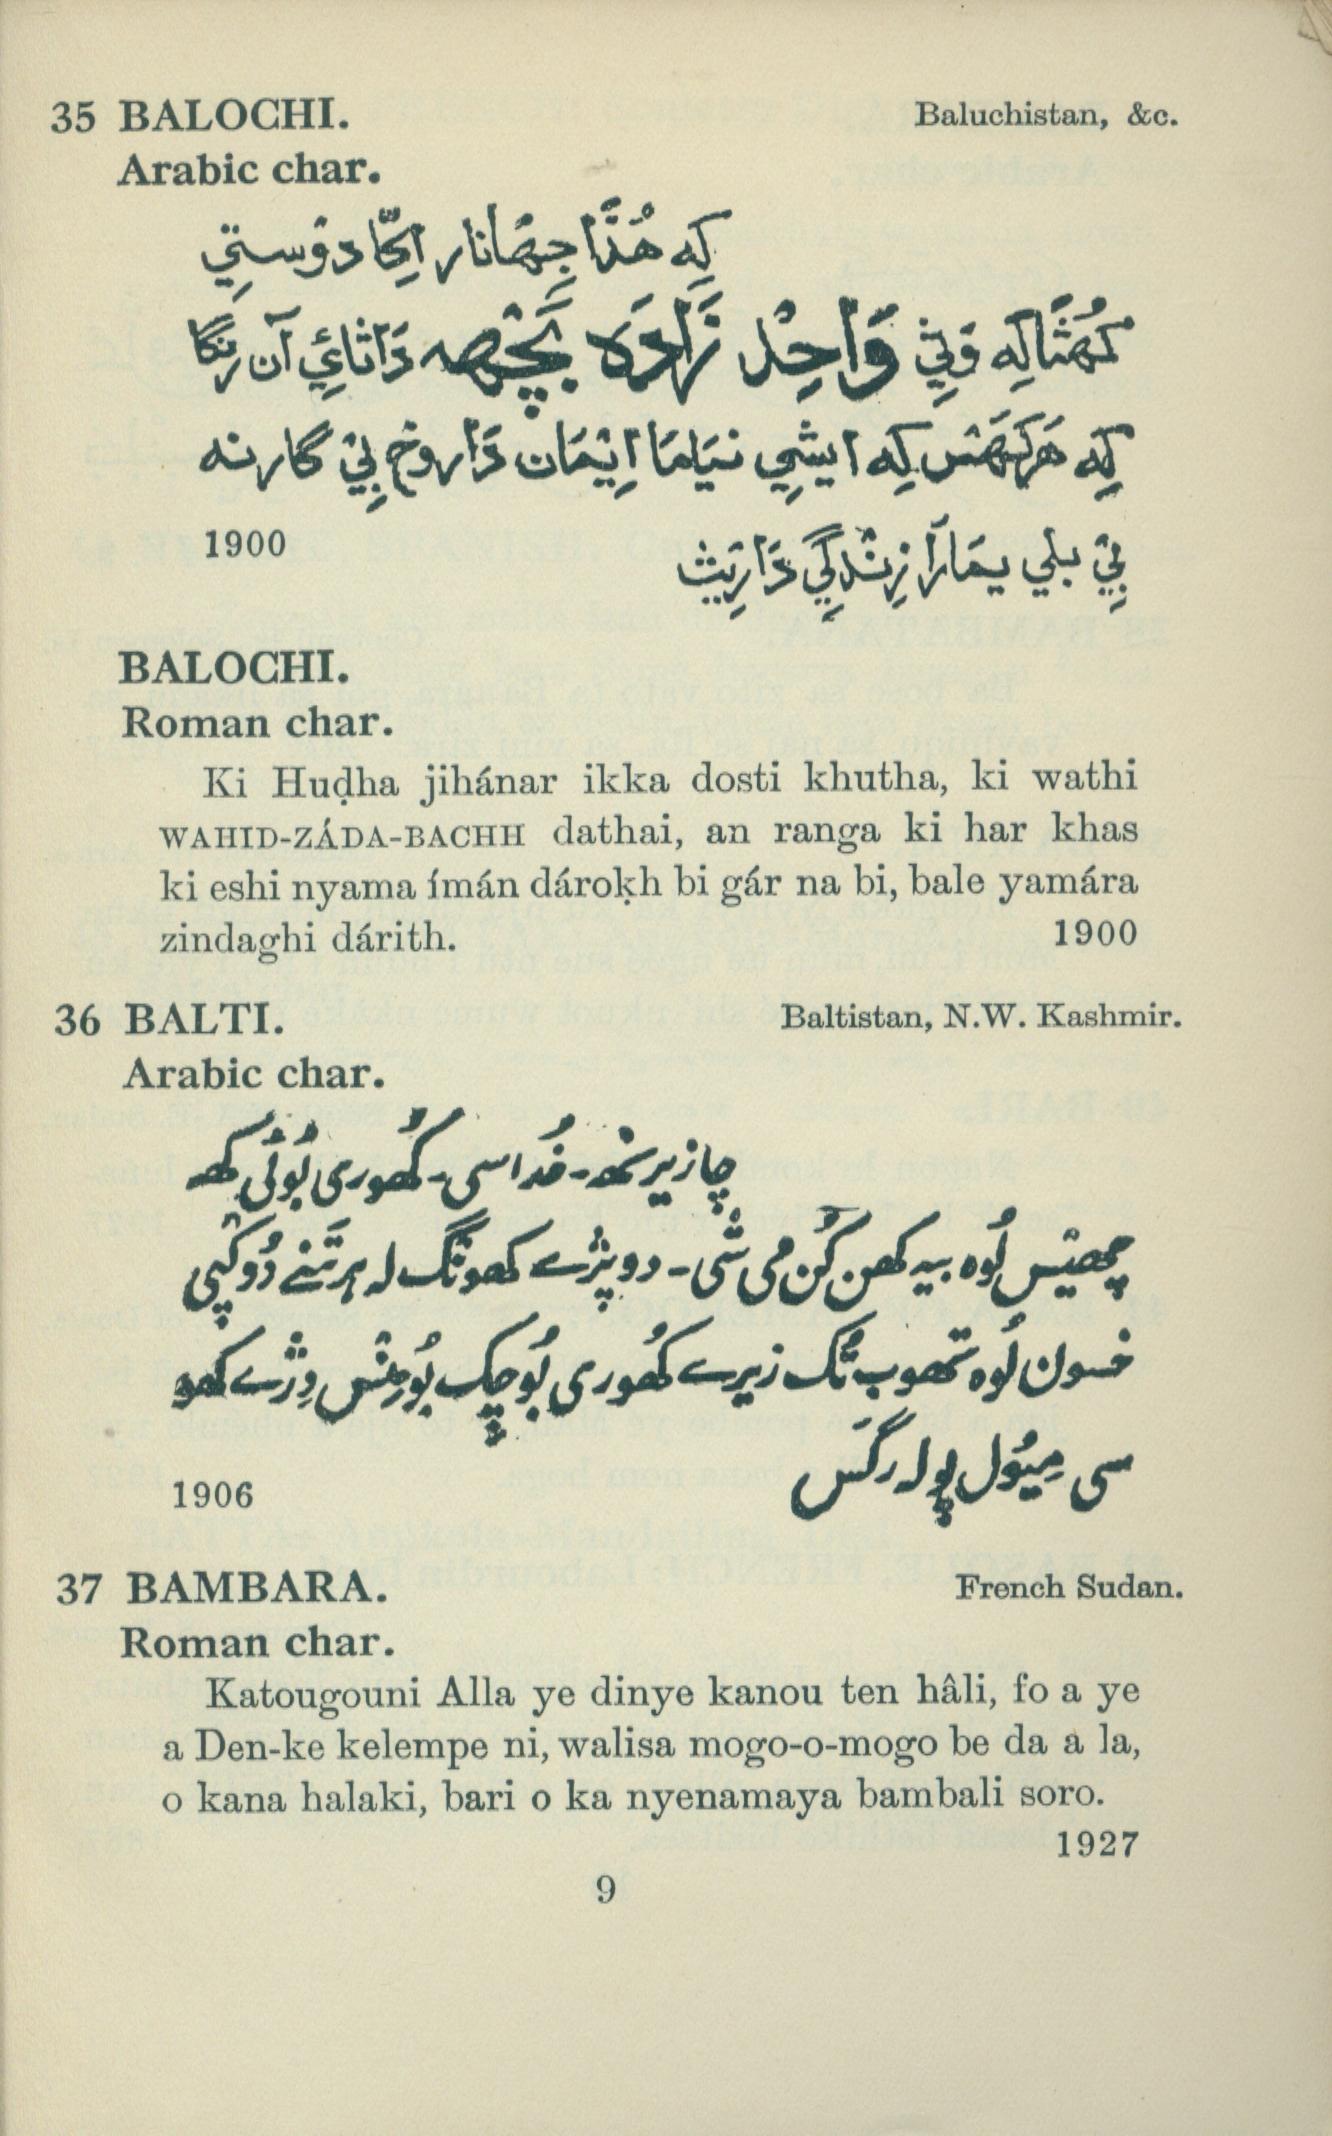 35 BALOCHI. Baluchistan, &c.
Arabic char.
کِه هُدَّا جِهَانار اِکّا دوستِي
کُهثَاکِه وَثِي وَاحِدْ زَادَه بَچّهہ دَاثائِي آن رنگا
کِه هَرکَهَس کِه ایشِي نیَامَا اِیْمَان دَاروخ بِيْ گار نه
1900 بِيْ بلي یمَارَا زِنْدگِي دَارِیْث
BALOCHI.
Roman char.
Ki Huḍha jihánar ikka dosti khutha, ki wathi
WAHID-ZÁDA-BACHH dathai, an ranga ki har khas
ki eshi nyama ímán dároḳh bi gár na bi, bale yamára
zindaghi dárith. 1900
36 BALTI. Baltistan, N.W. Kashmir.
Arabic char.
چا زیر نمھ - خُدا سی - کُھوری بُوٹی کھہ
لُوہ بیہ کھن کُن می شی - دو پژے کھوتگ لہ ہرتنے
خسون لُوہ تھوب تُک زیرے کُھوری بُوچِک وژے کھو
1906 سی مِیُول پولہ رگس
37 BAMBARA. French Sudan.
Roman char.
Katougouni Alla ye dinye kanou ten hâli, fo a ye
a Den-ke kelempe ni, walisa mogo-o-mogo be da a la,
o kana halaki, bari o ka nyenamaya bambali soro.
1927
9